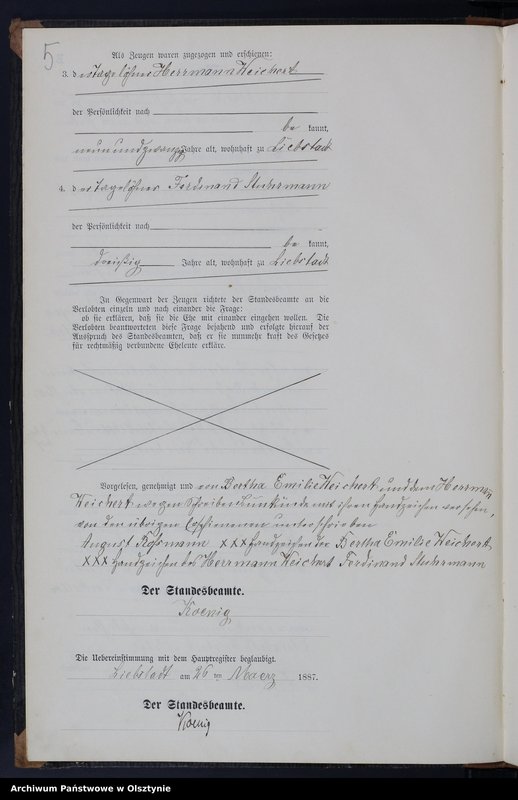 5
Als Zeugen waren zugezogen und erschienen:
3. der Tagelöhner Herrmann Weichert
der Persönlichkeit nach
be kannt,
neunundzwanzig Jahre alt, wohnhaft zu Liebstadt
4. der Tagelöhner Ferdinand Stuhrmann
der Persönlichkeit nach
be kannt,
dreißig Jahre alt, wohnhaft zu Liebstadt
In Gegenwart der Zeugen richtete der Standesbeamte an die
Verlobten einzeln und nach einander die Frage:
ob sie erklären, daß sie die Ehe mit einander eingehen wollen. Die
Verlobten beantworteten diese Frage bejahend und erfolgte hierauf der
Ausspruch des Standesbeamten, daß er sie nunmehr kraft des Gesetzes
für rechtmäßig verbundene Eheleute erkläre.
Vorgelesen, genehmigt und von Bertha Emilie Weichert und dem Herrmann
Weichert wegen Schreibensunkunde mit ihren Handzeichen versehen,
von den übrigen Erschienenen unterschrieben
August Roßmann XXX Handzeichen der Bertha Emilie Weichert
XXX Handzeichen des Herrmann Weichert Ferdinand Stuhrmann
Der Standesbeamte.
Koenig
Die Uebereinstimmung mit dem Hauptregister beglaubigt.
Liebstadt am 26 ten Maerz 1887.
Der Standesbeamte.
Koenig
Archiwum Państwowe w Olsztynie